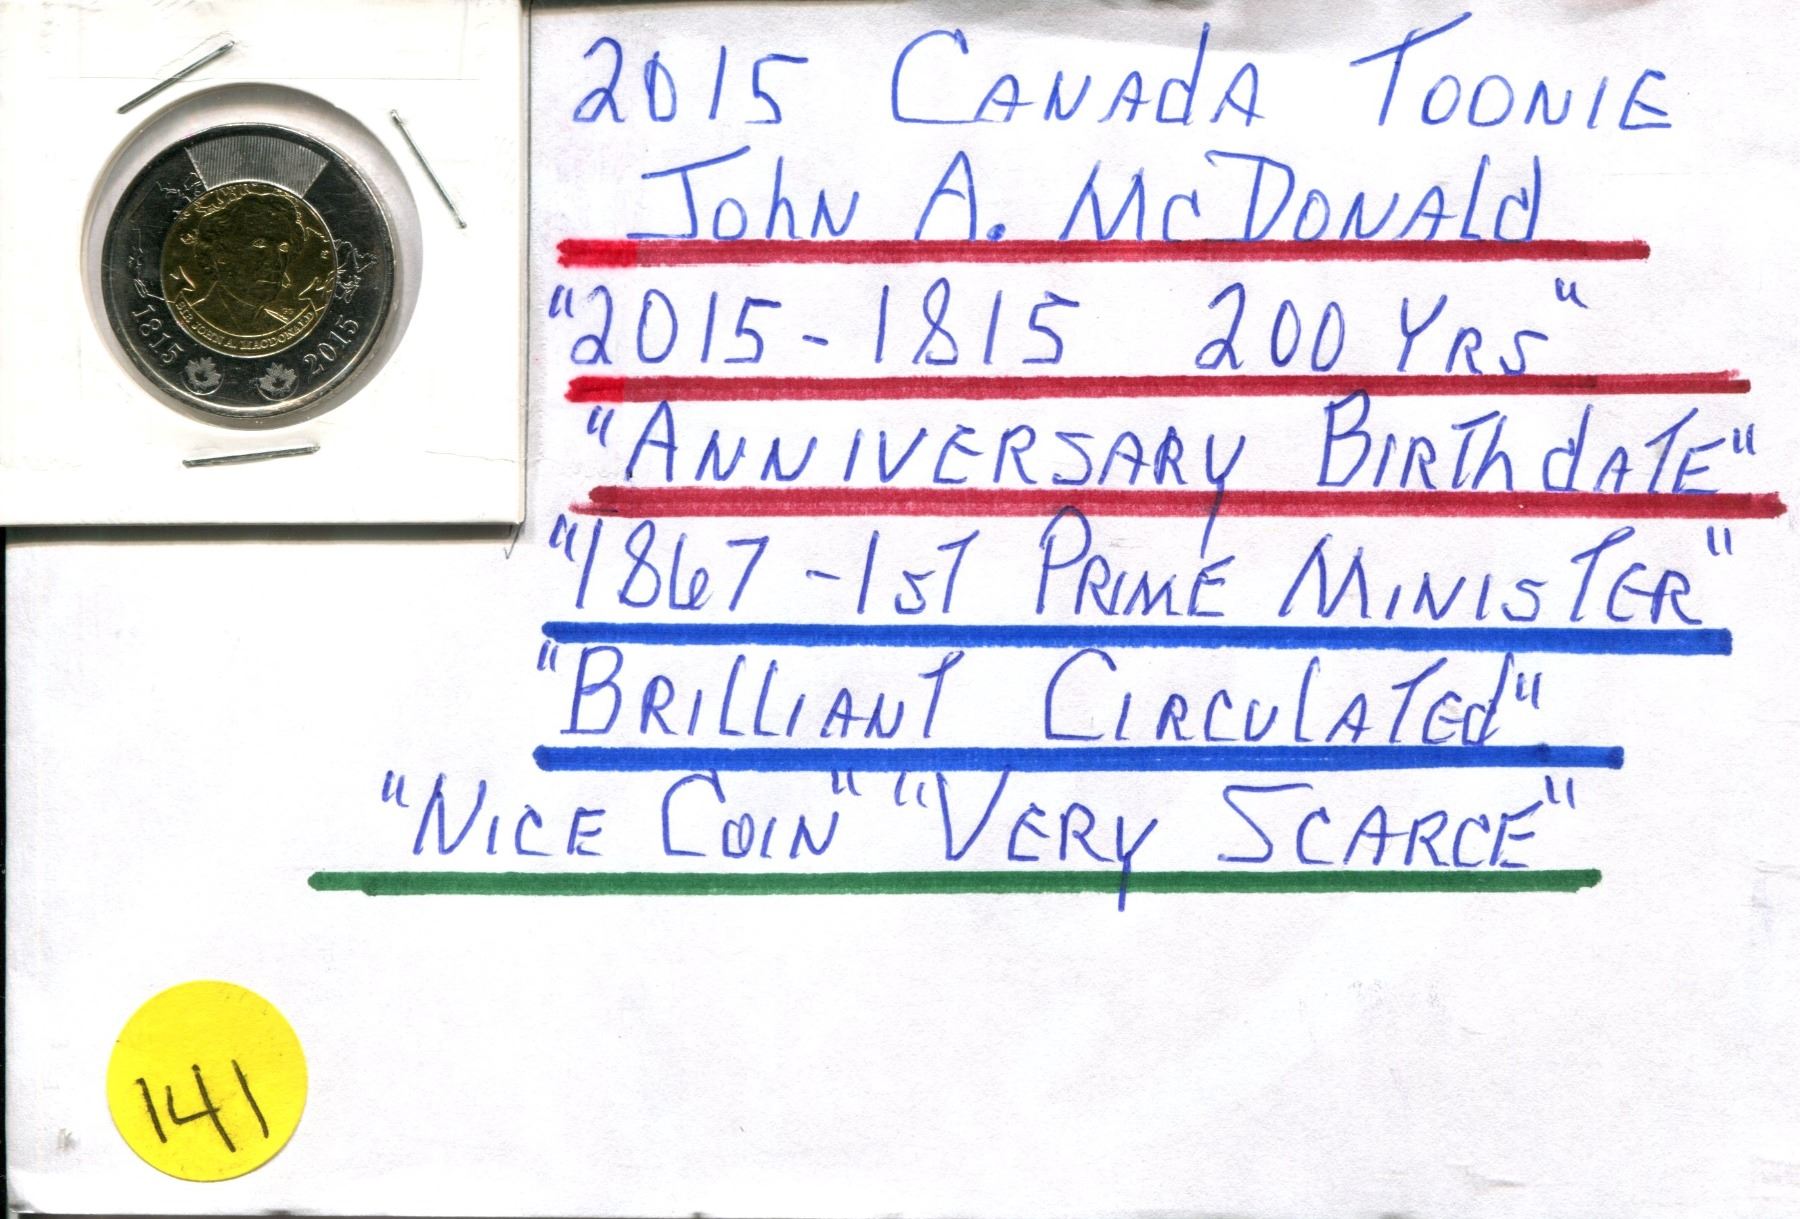 2015 CANADA TOONIE
JOHN A. McDONALD
"2015-1815 200 YRS"
"ANNIVERSARY BIRTHDATE"
"1867-1ST PRIME MINISTER"
"BRILLIANT CIRCULATED"
"NICE COIN" "VERY SCARCE"
SIR JOHN A. MACDONALD
1815 2015
141